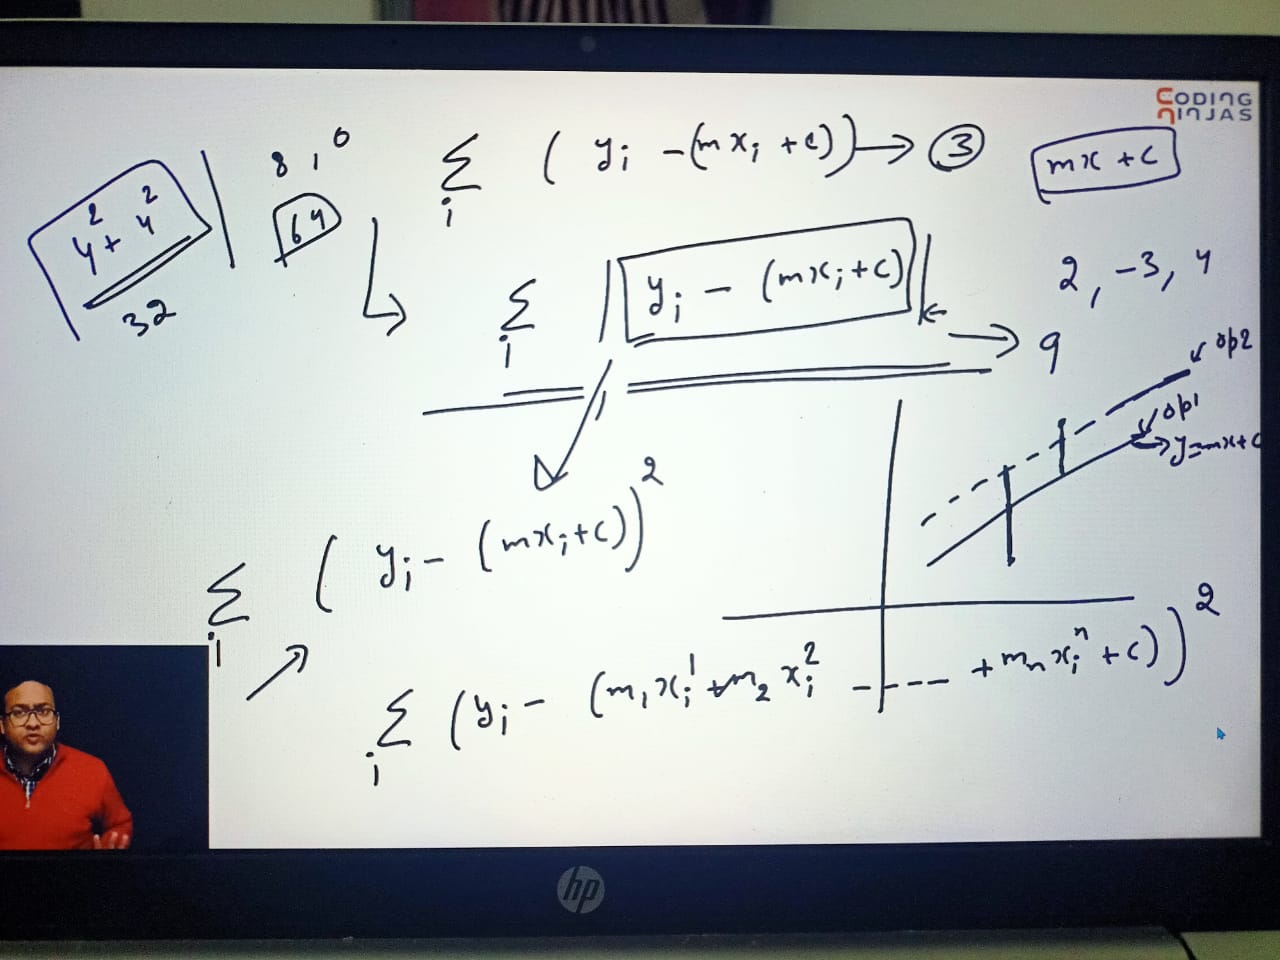 CODING
NINJAS
4² + 4²
32
8, 0
64
Σ i ( yi - (mxi + c)) → 3
mx + c
Σ i | yi - (mxi + c) |
2, -3, 4
→ 9
op2
op1
y=mx+c
Σ i ( yi - (mxi + c))²
Σ i (yi - (m₁xi¹ + m₂xi² ---- + mₙxiⁿ + c))²
hp